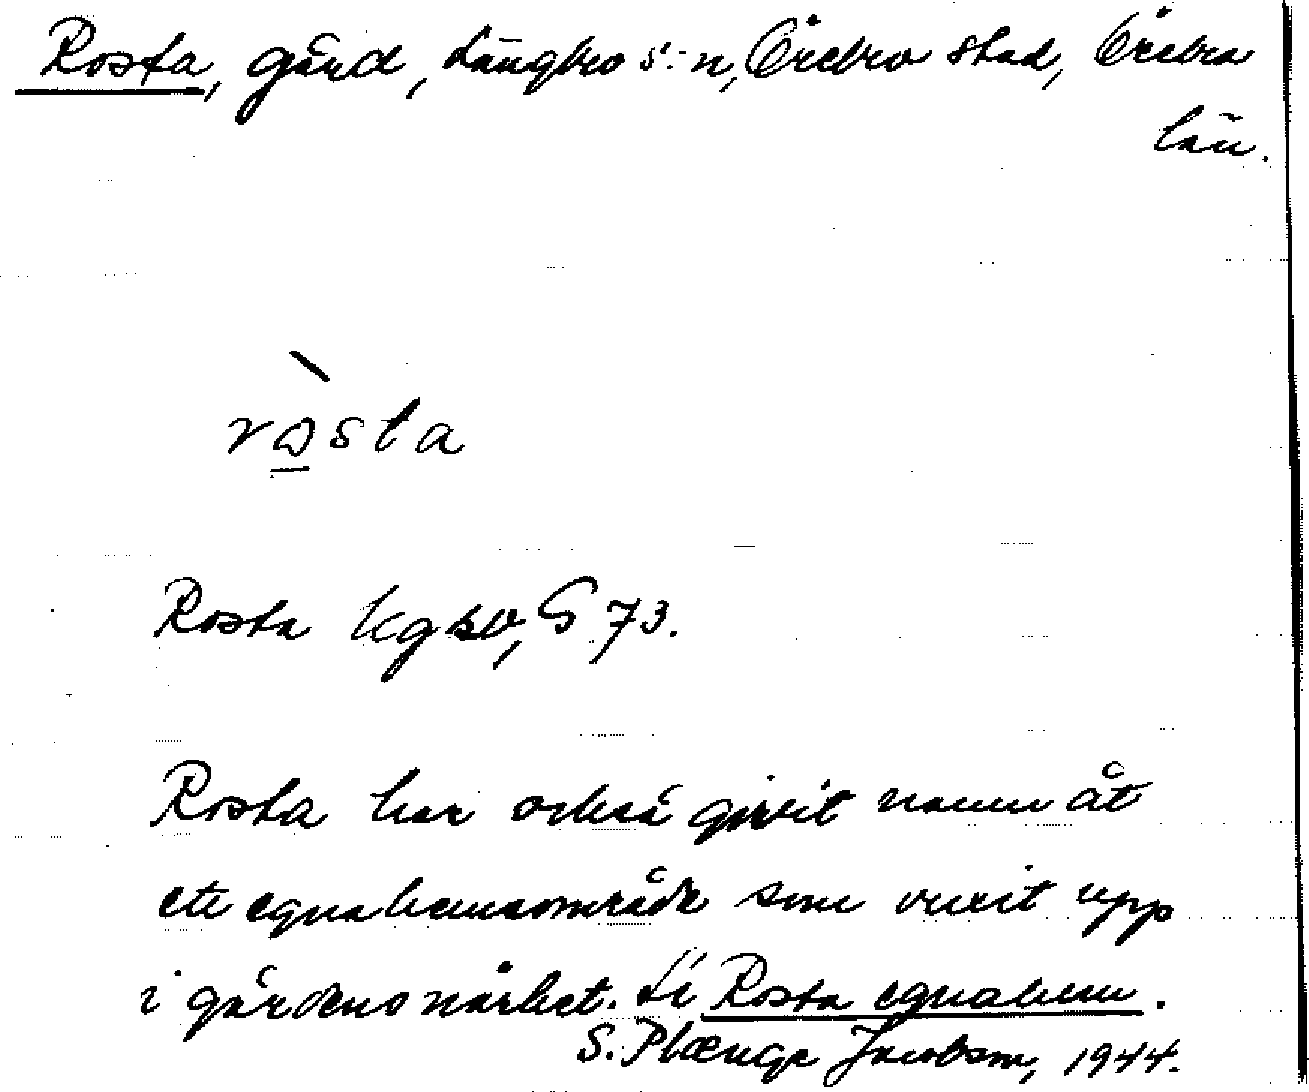 Rosta, gård, Längbro s:n, Örebro stad, Örebro
län.
rosta
Rosta kgso, G 73.
Rosta har också givit namn åt
ett egnahemsområde som vuxit upp
i gårdens närhet. Se Rosta egnahem.
S. Plænge Jacobson, 1944.